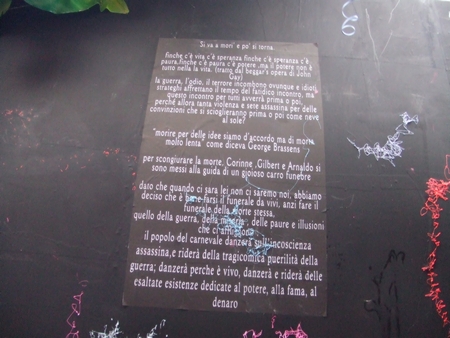 Si va a mori' e po' si torna
finche c'è vita c'è speranza finche c'è speranza c'è
paura,finche c'è paura c'è potere ,ma il potere non è
tutto nella la vita. (tratto dal beggar's opera di John
Gay)
la guerra, l'odio, il terrore incombono ovunque e idioti
strateghi affrettano il tempo del fatidico incontro, ma
questo incontro per tutti avverrà prima o poi,
perché allora tanta violenza e sete assassina per delle
convinzioni che si scioglieranno prima o poi come neve
al sole?
"morire per delle idee siamo d'accordo ma di morte
molto lenta" come diceva George Brassens
per scongiurare la morte, Corinne ,Gilbert e Arnaldo si
sono messi alla guida di un gioioso carro funebre
dato che quando ci sara lei non ci saremo noi, abbiamo
deciso che è bene farsi il funerale da vivi, anzi fare il
funerale della morte stessa,
quello della guerra, della miseria, delle paure e illusioni
che ci
il popolo del carnevale danzerà sull'incoscienza
assassina,e riderà della tragicomica puerilità della
guerra; danzerà perche è vivo, danzerà e riderà delle
esaltate esistenze dedicate al potere, alla fama, al
denaro